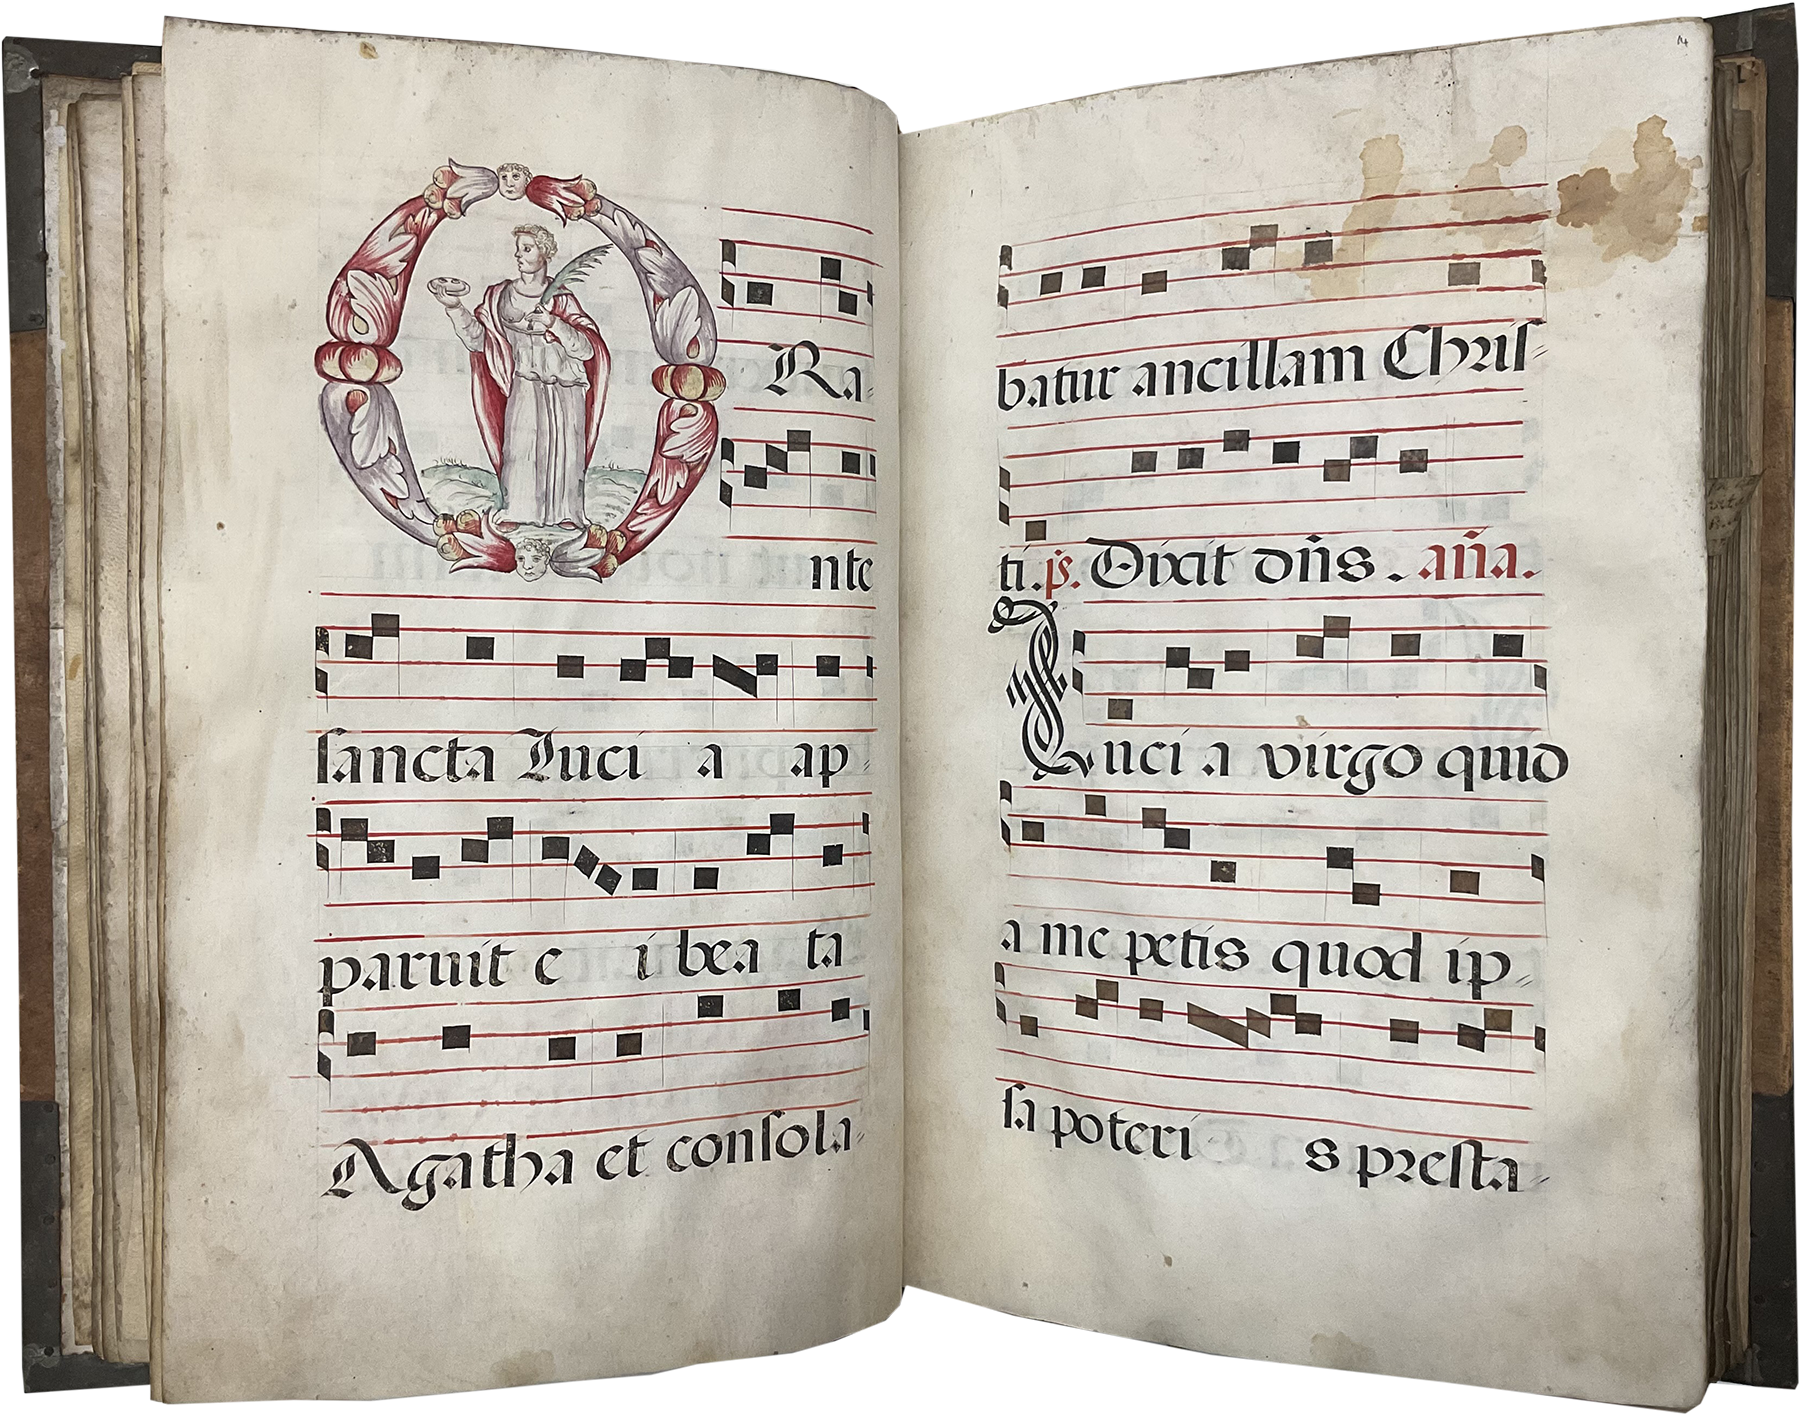 O
Ra-
nte
sancta Luci a ap-
paruit e i bea ta
Agatha et consola-
14
batur ancillam Chris-
ti. ps. Dixit dñs. aña.
Luci a virgo quid
a me petis quod ip-
sa poteri s presta-